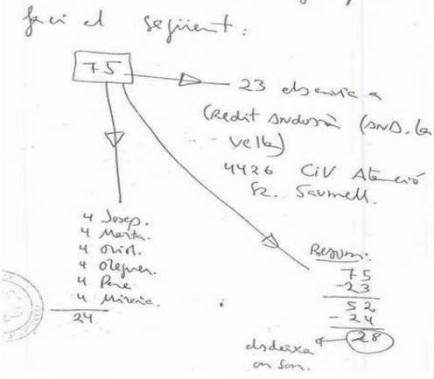 faci el següent:
75
23 els envia a
Credit Andorrà (AND. la
Vella)
4426 CIV Atenció
Sr. Saumell.
4 Josep.
4 Marta.
4 Oriol.
4 Oleguer.
4 Pere
4 Mireia.
24
Resum:
75
-23
52
-24
28
els deixa
on son.